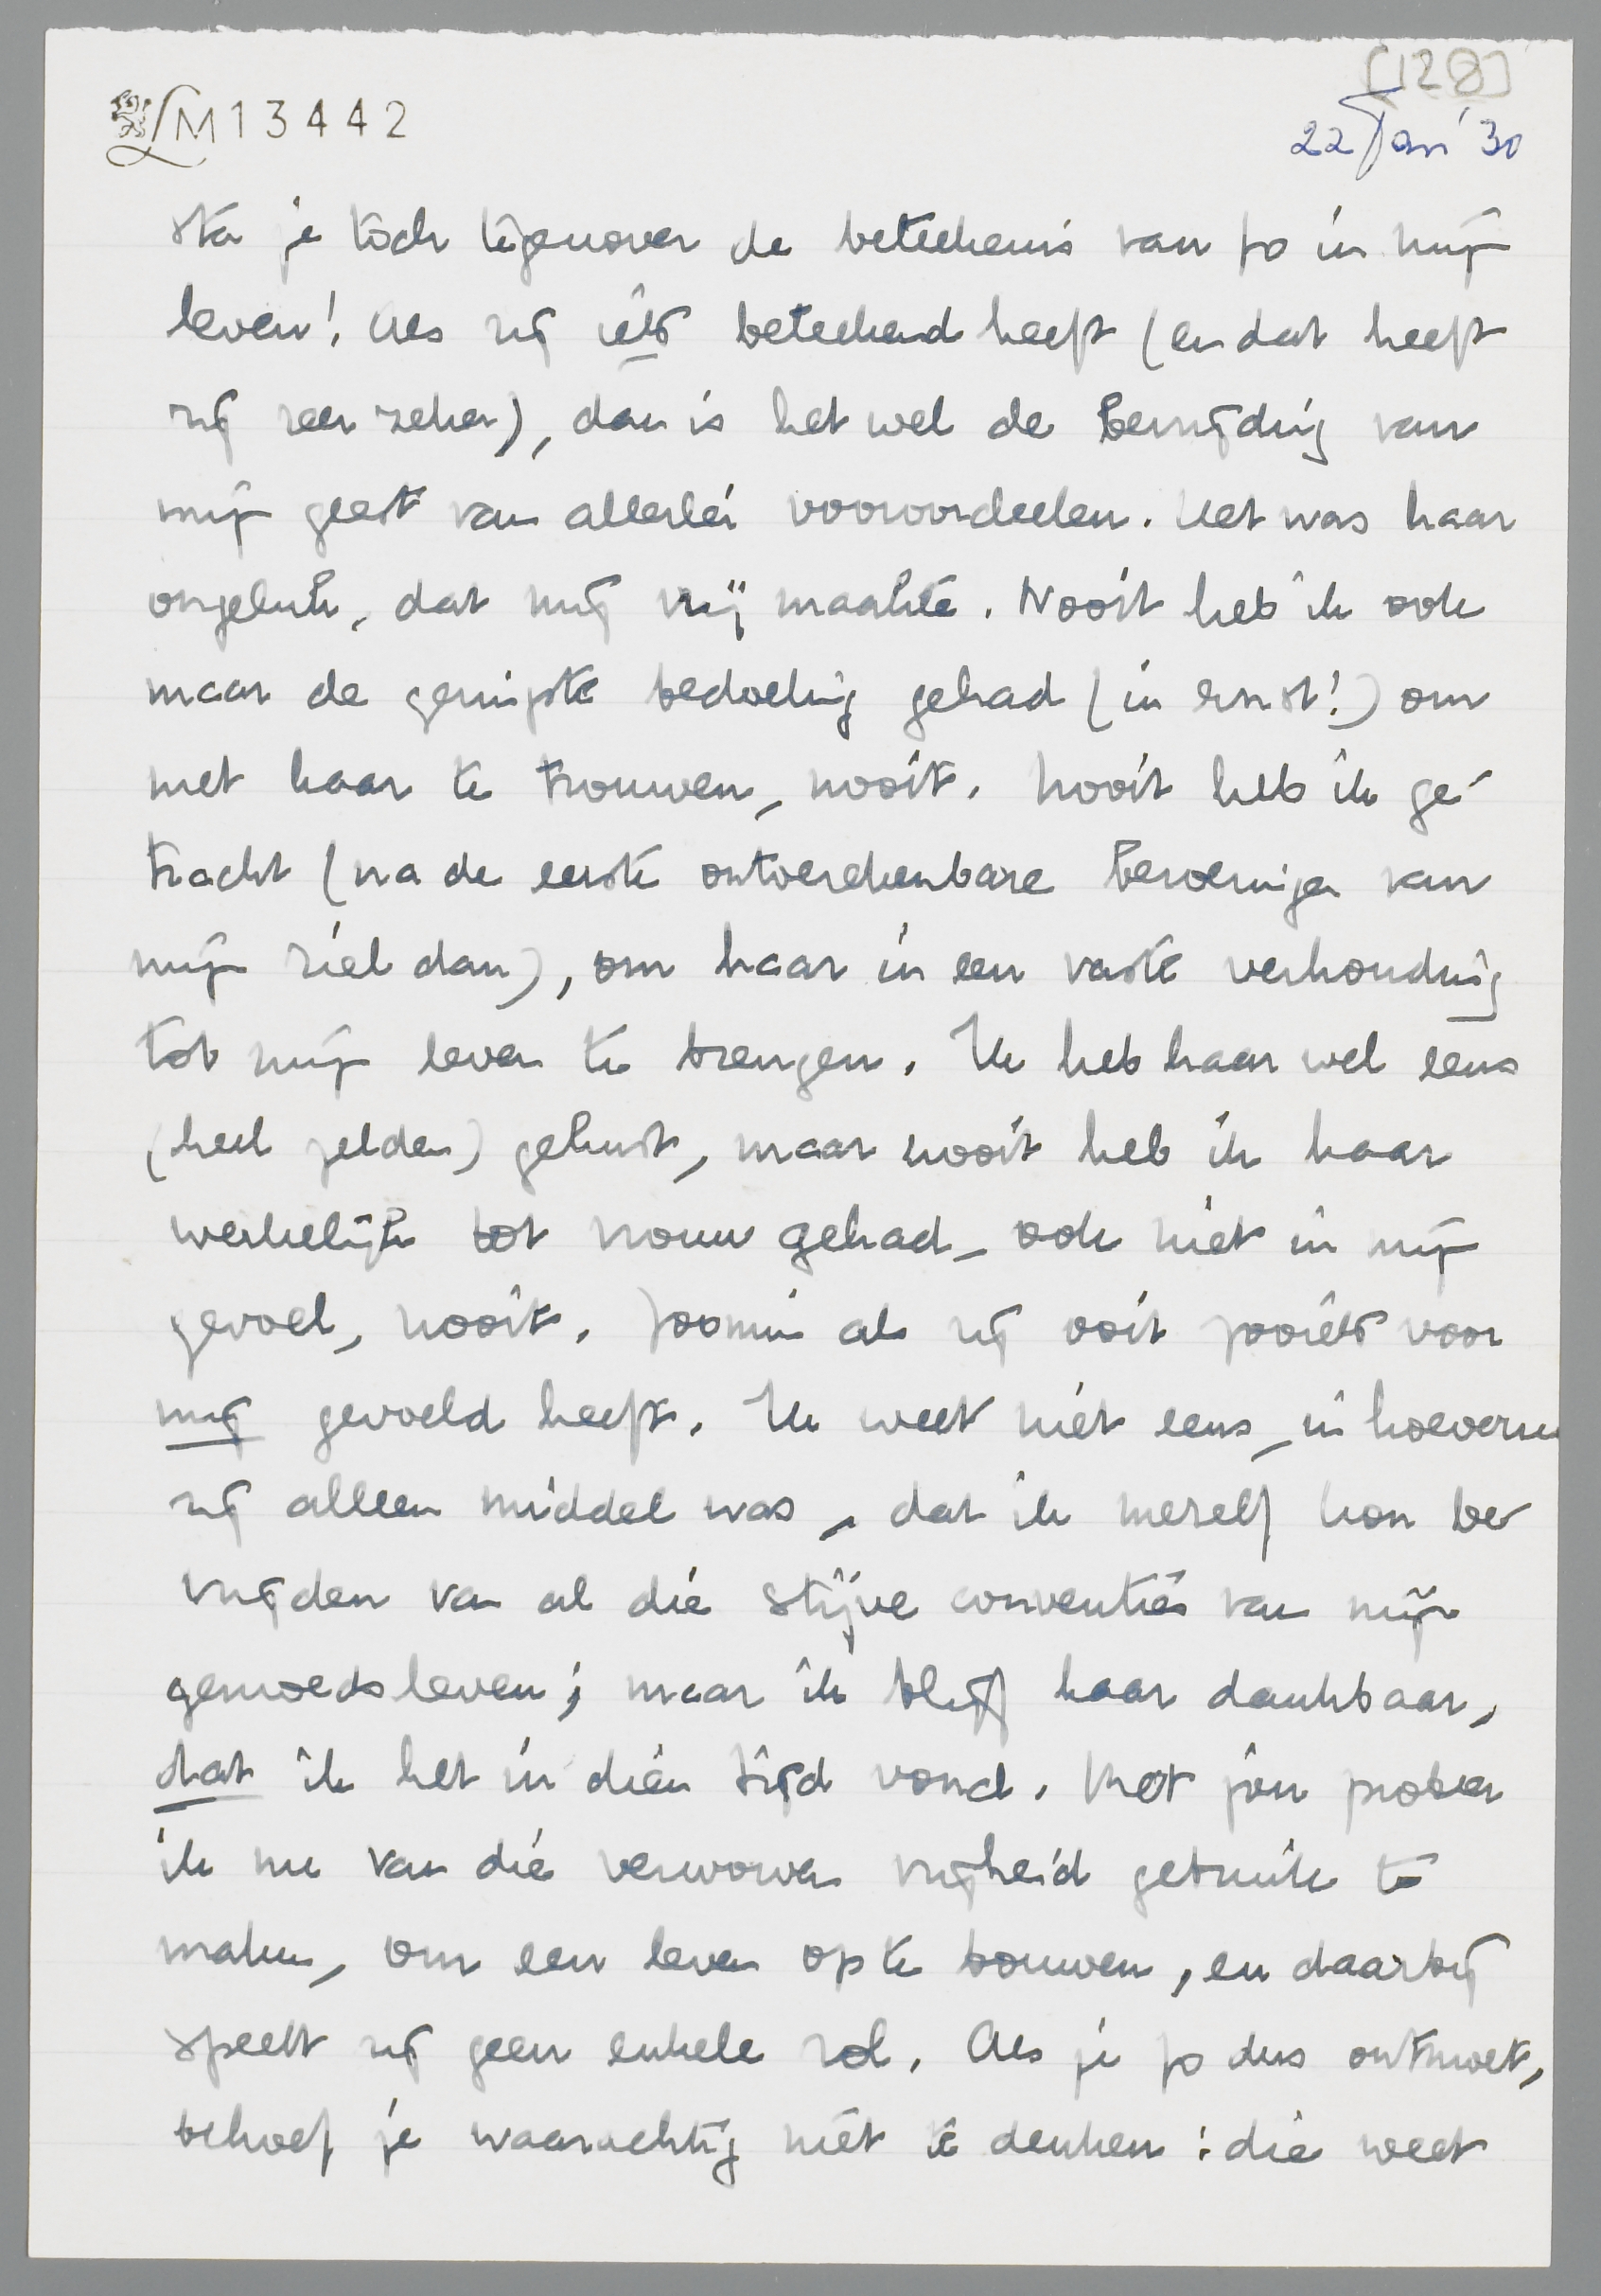 [128]
LM13442
22 Jan '30
sta je toch tegenover de beteekenis van Jo in mijn
leven! Als zij iets beteekend heeft (en dat heeft
zij zeer zeker), dan is het wel de bevrijding van
mijn geest van allerlei vooroordeelen. Het was haar
ongeluk, dat mij vrij maakte. Nooit heb ik ook
maar de geringste bedoeling gehad (in ernst!) om
met haar te trouwen, nooit. Nooit heb ik ge-
tracht (na de eerste ontoerekenbare beroeringen van
mijn ziel dan), om haar in een vaste verhouding
tot mijn leven te brengen. Ik heb haar wel eens
(heel zelden) gekust, maar nooit heb ik haar
werkelijk tot vrouw gehad, ook niet in mijn
gevoel, nooit. Zoomin als zij ooit zooiets voor
mij gevoeld heeft. Ik weet niet eens, in hoeverre
zij alleen middel was, dat ik mezelf kon be
vrijden van al die stijve conventies van mijn
gemoedsleven; maar ik blijf haar dankbaar,
dat ik het in dien tijd vond. Met jou probeer
ik nu van die verworven vrijheid gebruik te
maken, om een leven op te bouwen, en daarbij
speelt zij geen enkele rol. Als je Jo dus ontmoet,
behoef je waarachtig niet te denken: die weet